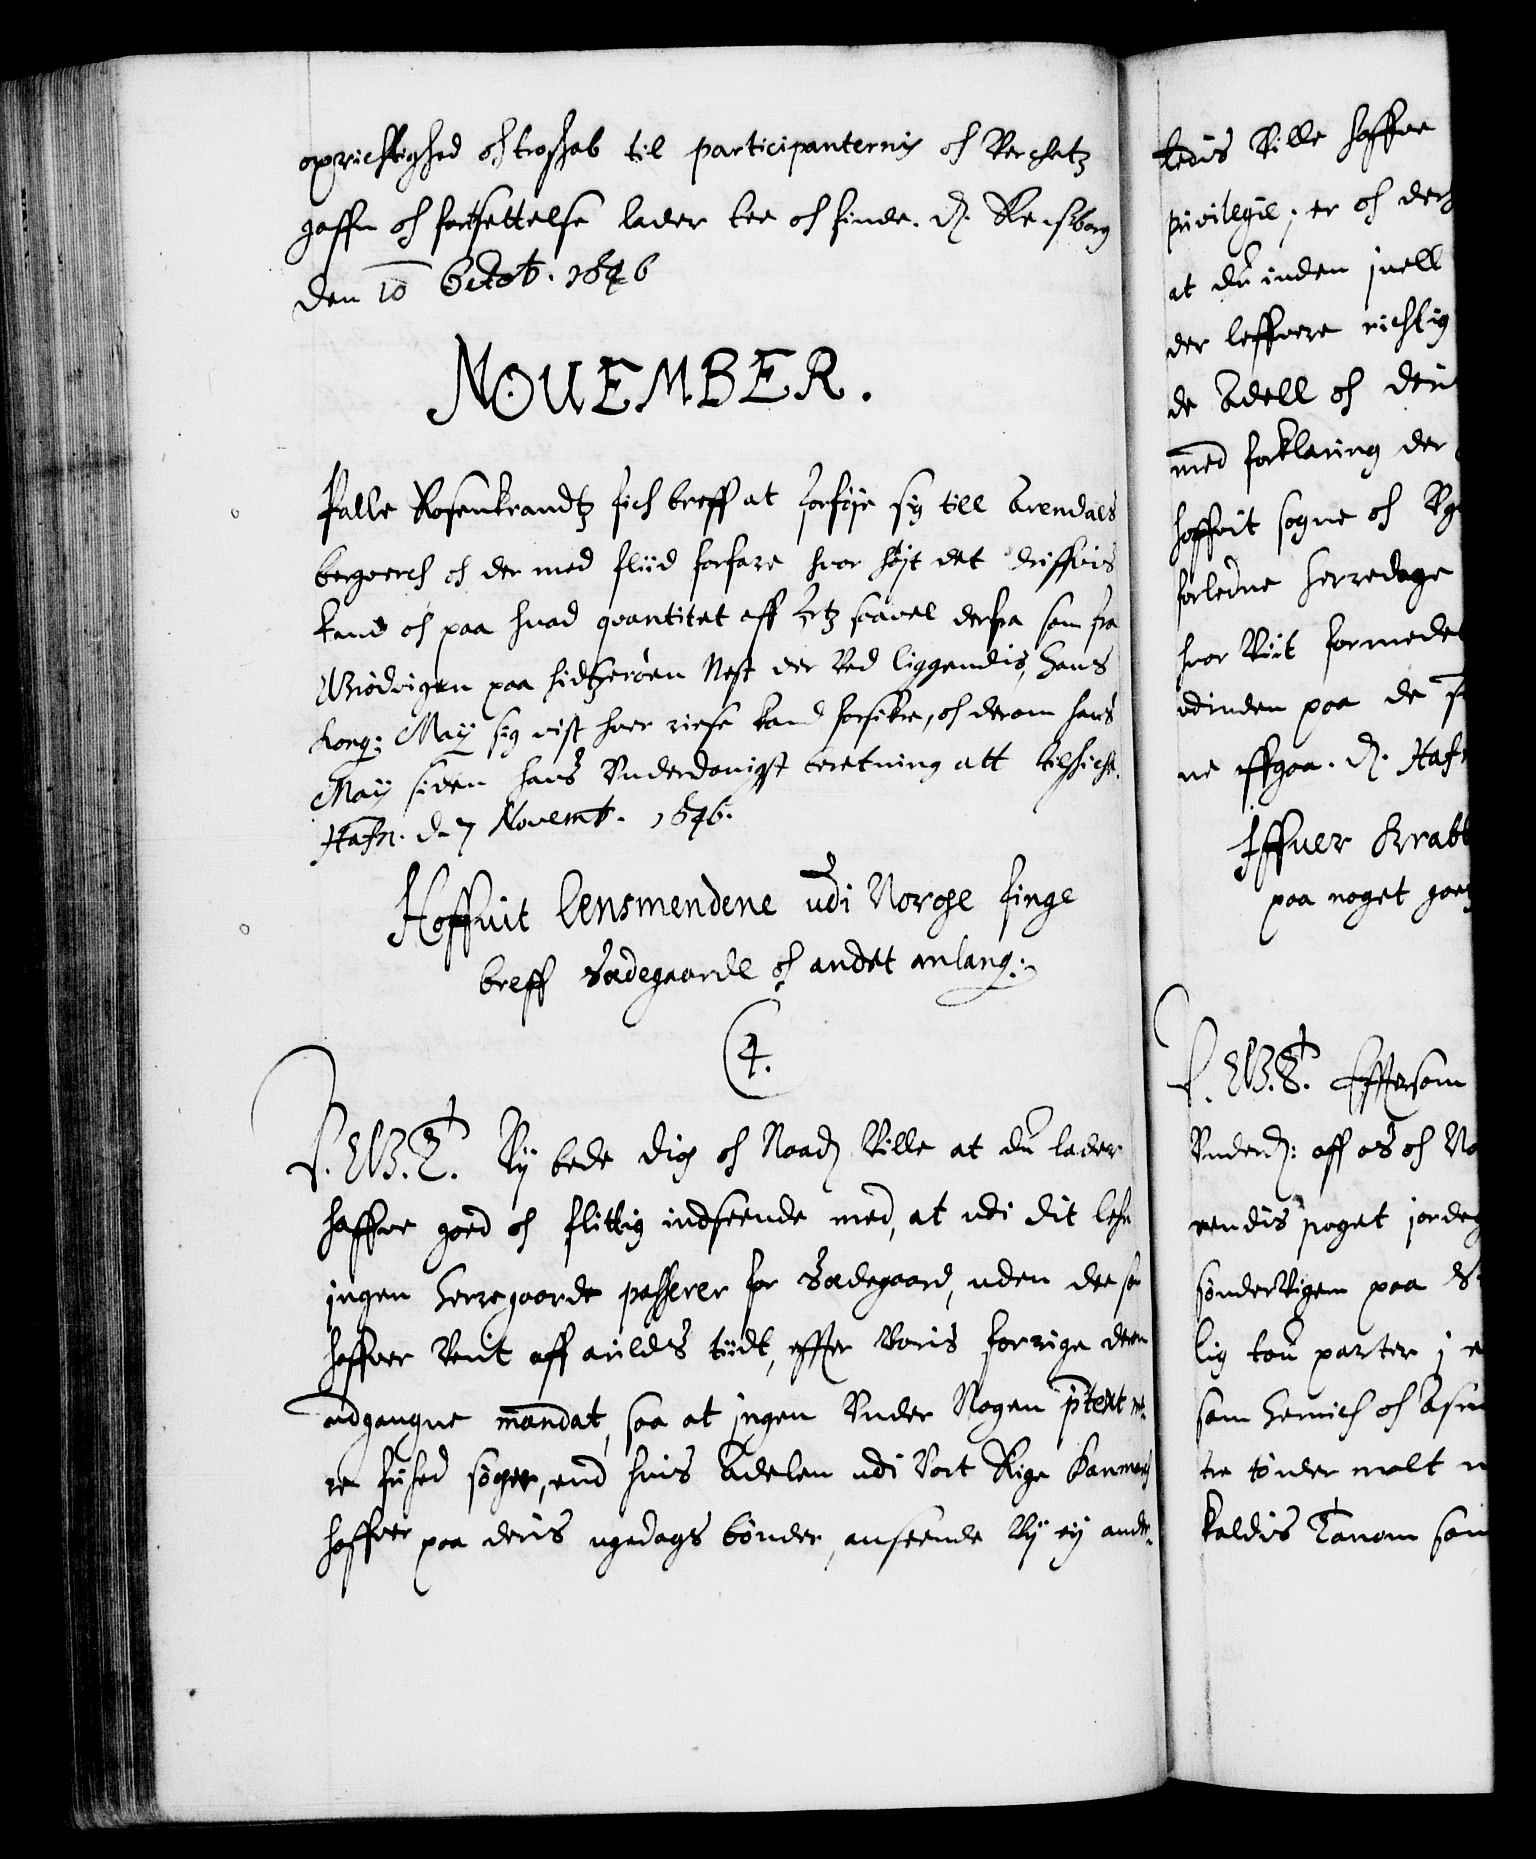 oprichtighed och troskab til participanternis och Verchetz
gaffn och fortsettelse lader tee och finde. Dt. Rensborg
den 10 Octob. 1646
NOUEMBER.
Palle Rosenkrandtz fich breff at forføje sig till Arendals
bergverch och der med fliid forfare hvor højt det driffvis
kand och paa hvad qvantitet aff Ertz saavel derfra som fra
paa hidtzerøen Nest der ved liggendis, Hans
Kong: May sig vist hver reise kand forsikre, och derom hans
May siden hans Underdanigst beretning att tilskiche.
Hafn. d. 7 Novemb. 1646.
Hoffuit Lensmendene udi Norge finge
breff Sædegaarde och andet anlang:
4.
Vy bede dig och Naad: Ville at du lader
haffve goed och flittig indseende med, at udi dit lehn
ingen Herregaarde passerer for Sædegaard, uden dee som
haffver Verit aff arilds tiidt, effter Voris forrige derom
udgangne mandat, saa at ingen Under Nogen prtext me-
re friihed søger, end huis Adelen udi Vort Rige Danmarch
haffver paa deris ugedags bønder, anseende Vy ey ander-
ledis Ville haffve
privilegie; er och der
at du inden juell
der leffvere richtig
de Adell och
med forklaring der
hoffvit sogne och
forledne Herredage
hvor Viit formede
udinden paa de
ne effgaa. Dt. Hafn
Iffuer Krabb
paa noget
Efftersom
Underd: aff os och No
rendis noget jordeg
sønderVigen paa
lig tou parter j
som Henrich och
tre tønder malt
kaldis Tanom som